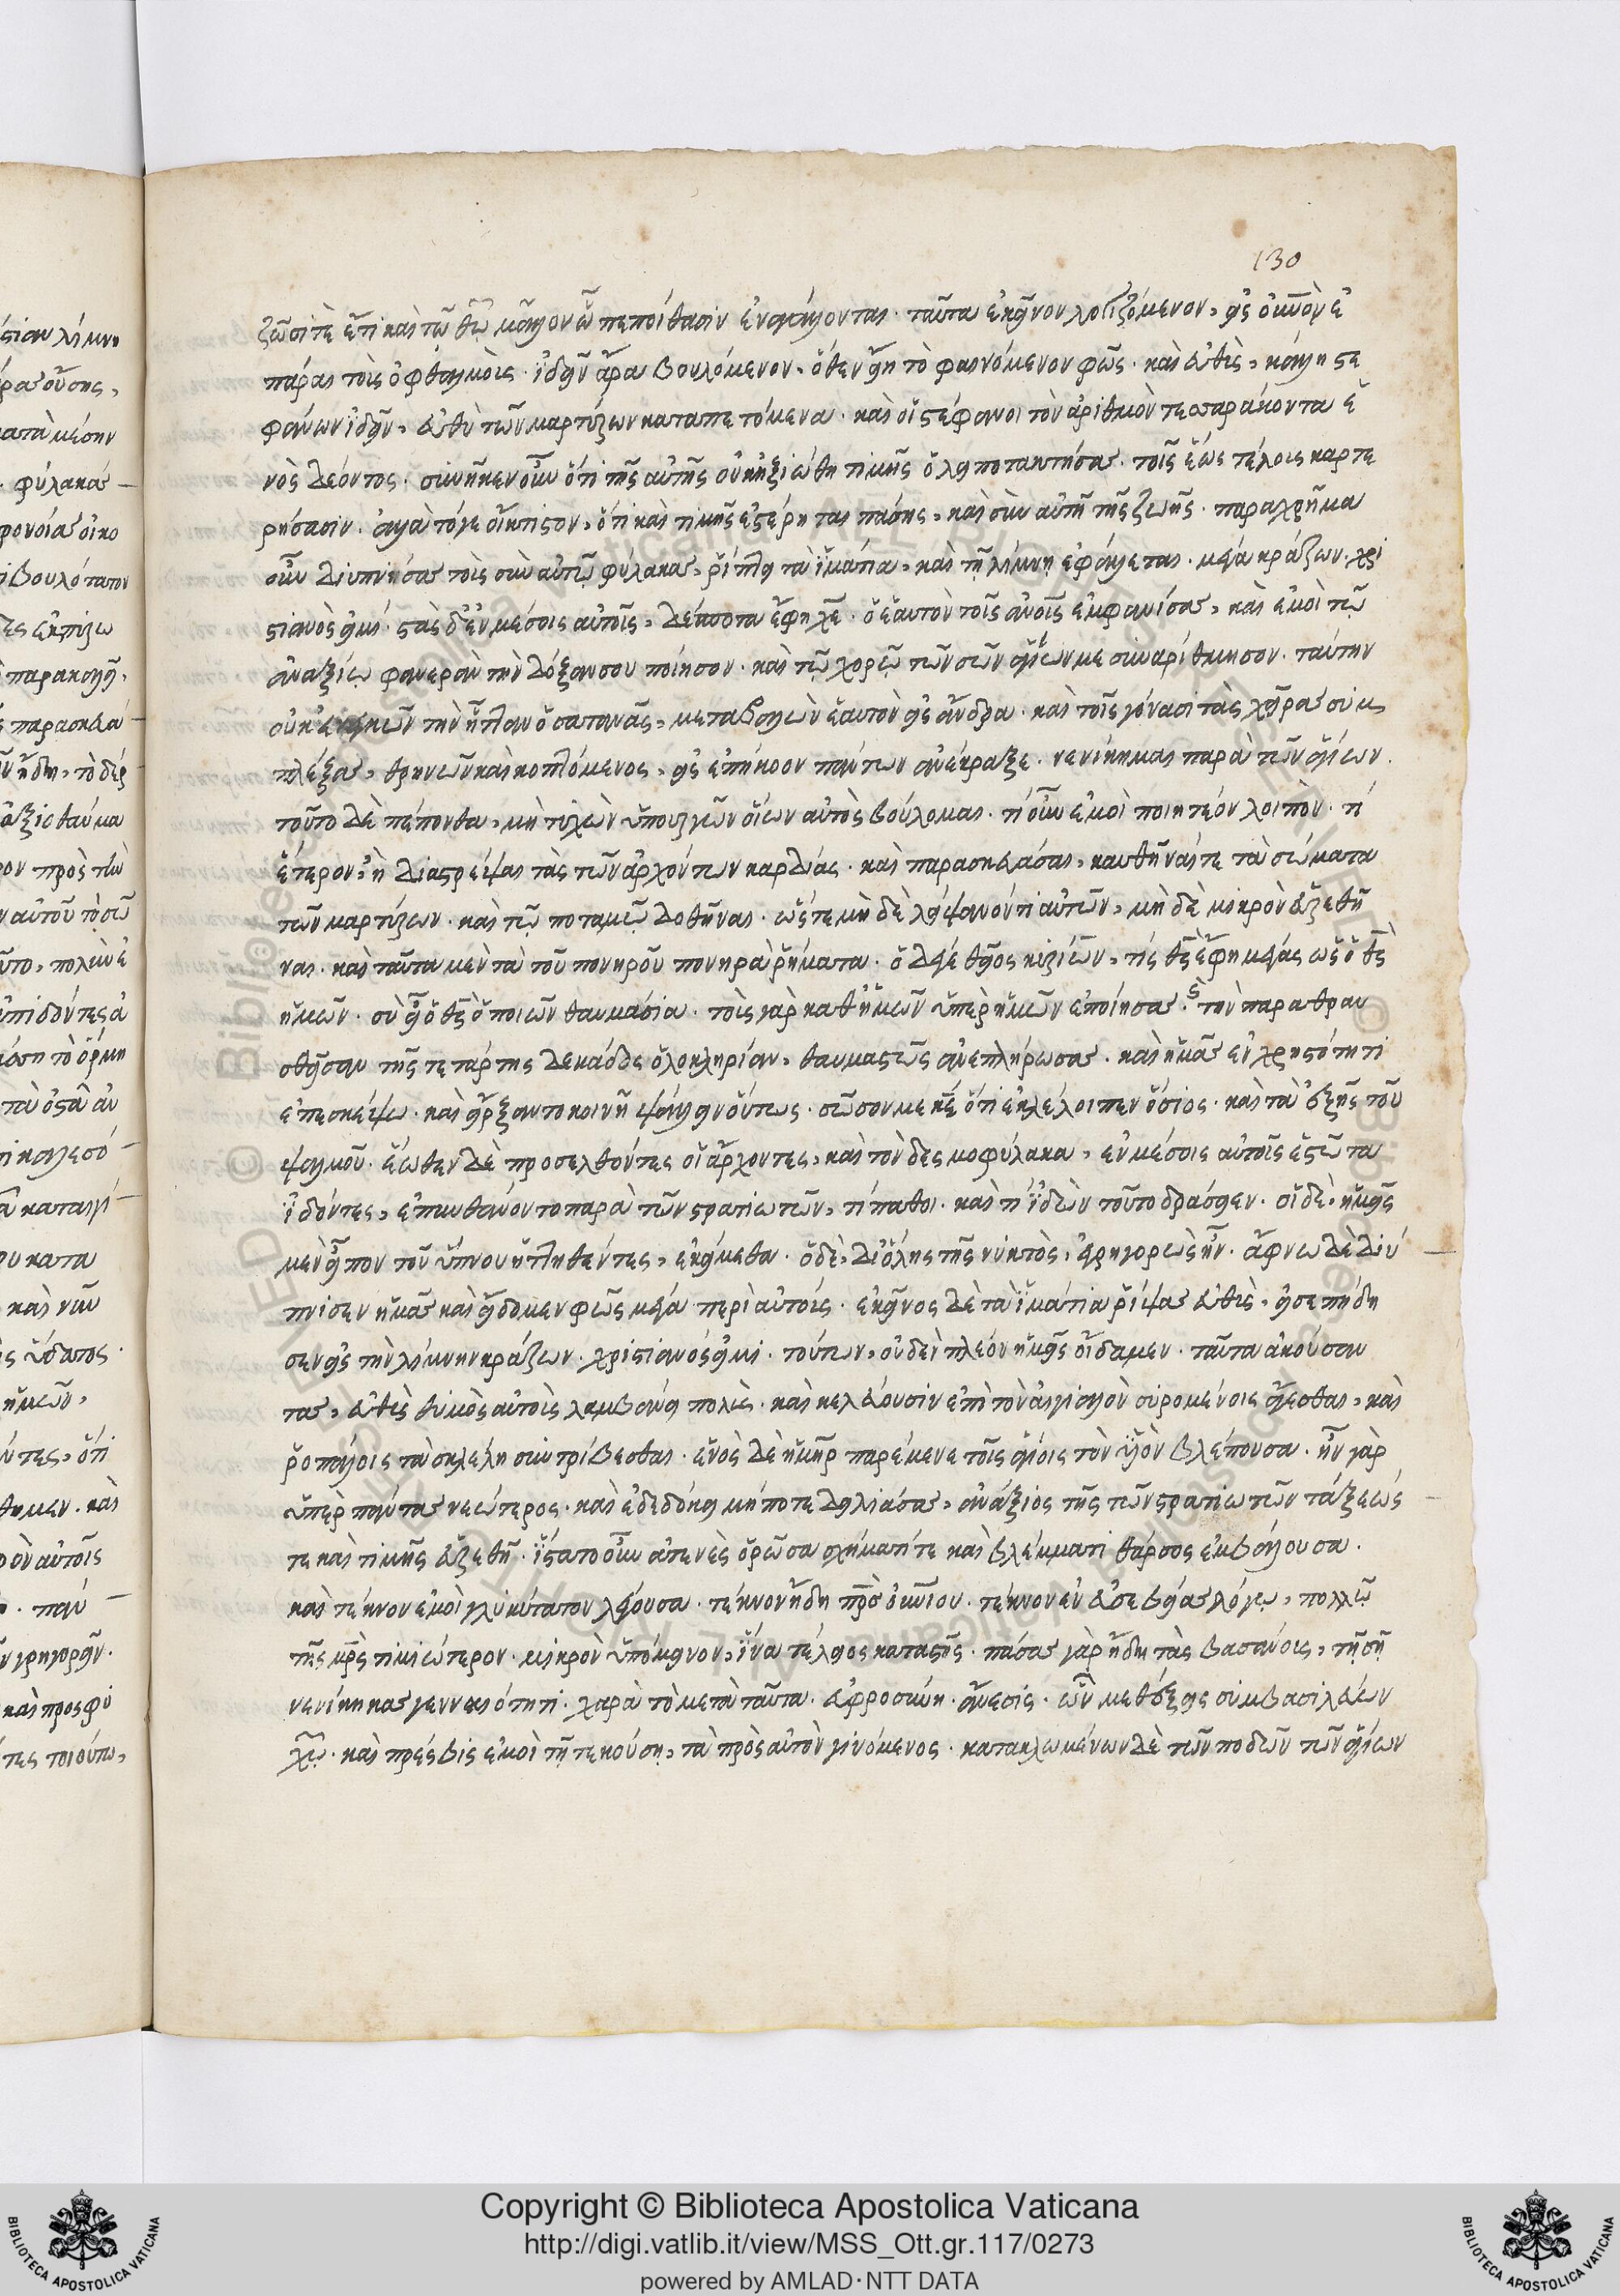 130
ζῶσί τε ἔτι καὶ τῷ θῷ μᾶλλον ᾧ πεποίθασιν ἐναγάλλονται. ταῦτα ἐκεῖνον λογιζόμενον, εἰς οὐνὸν ἐ
πᾶραι τοὺς ὀφθαλμοὺς. ἰδεῖν ἄρα βουλόμενον, ὅθεν εἴη τὸ φαινόμενον φῶς. καὶ εὐθὺς, κάλλη στε
φάνων ἰδεῖν, εὐθὺ τῶν μαρτύρων καταπετόμενα. καὶ οἱ στέφανοι τὸν ἀριθμὸν τεσσαράκοντα ἑ
νὸς δέοντος. συνῆκεν οὖν ὅτι τῆς αὐτῆς οὐκ ἠξιώθη τιμῆς ὁ λειποτακτήσας. τοῖς ἕως τέλους καρτε
ρήσασιν. ἀλλὰ τόγε οἴκτιστον, ὅτι καὶ τιμῆς ἐστέρηται πάσης, καὶ σὺν αὐτῇ τῆς ζωῆς. παραχρῆμα
οὖν διυπνίσας τοὺς σὺν αὐτῷ φύλακας, ῥίπτει τὰ ἱμάτια, καὶ τῇ λίμνῃ ἐφάλλεται. μέγα κράζων. χρι
στιανὸς εἰμί. στὰς δ' ἐν μέσοις αὐτοῖς, δέσποτα ἔφη χε. ὁ ἑαυτὸν τοῖς ἀνοις ἐμφανίσας, καὶ ἐμοὶ τῷ
ἀναξίῳ φανερὰν τὴν δόξαν σου ποίησον. καὶ τῷ χορῷ τῶν σῶν ἁγίων με συναρίθμησον. ταύτην
οὐκ ἐνεγκὼν τὴν ἧτταν ὁ σατανᾶς, μεταβαλὼν ἑαυτὸν εἰς ἄνδρα. καὶ τοῖς γόνασι τὰς χεῖρας συμ
πλέξας, θρηνῶν καὶ κοπτόμενος, εἰς ἐπήκοον πάντων ἀνέκραξε. νενίκημαι παρὰ τῶν ἁγίων.
τοῦτο δὲ πέπονθα, μὴ τυχὼν ὑπουργῶν οἵων αὐτὸς βούλομαι. τί οὖν ἐμοὶ ποιητέον λοιπὸν. τί
ἕτερον, ἢ διαστρέψαι τὰς τῶν ἀρχόντων καρδίας. καὶ παρασκευάσαι, καυθῆναί τε τὰ σώματα
τῶν μαρτύρων. καὶ τῷ ποταμῷ δοθῆναι. ὥστε μὴ δὲ λείψανόν τι αὐτῶν, μὴ δὲ μικρὸν εὑρεθῆ
ναι. καὶ ταῦτα μὲν τὰ τοῦ πονηροῦ πονηρὰ ῥήματα. ὁ δέ γε θεῖος κυρίων, τίς θς ἔφη μέγας ὡς ὁ θς
ἡμῶν. σὺ εἶ ὁ θς ὁ ποιῶν θαυμάσια. τοὺς γὰρ καθ' ἡμῶν ὑπὲρ ἡμῶν ἐποίησας. ς τὴν παραθραυ
σθεῖσαν τῆς τετάρτης δεκάδος ὁλοκληρίαν, θαυμαστῶς ἀνεπλήρωσας. καὶ ἡμᾶς ἐν χρηστότητι
ἐπεσκέψω. καὶ ἤρξαντο κοινῇ ψάλλειν οὕτως. σῶσον με κε ὅτι ἐκλέλοιπεν ὅσιος. καὶ τὰ ἑξῆς τοῦ
ψαλμοῦ. ἕωθεν δὲ προσελθόντες οἱ ἄρχοντες, καὶ τὸν δεσμοφύλακα, ἐν μέσοις αὐτοῖς ἑστῶτα
ἰδόντες, ἐπυνθάνοντο παρὰ τῶν στρατιωτῶν, τί πάθοι. καὶ τί ἰδὼν τοῦτο δράσειεν. οἱ δὲ, ἡμεῖς
μὲν εἶπον τοῦ ὕπνου ἡττηθέντες, ἐκείμεθα. ὁ δὲ, δι' ὅλης τῆς νυκτὸς, ἐγρηγορὼς ἦν. ἄφνω δὲ διύ
πνισεν ἡμᾶς καὶ εἴδομεν φῶς μέγα περὶ αὐτούς. ἐκεῖνος δὲ τὰ ἱμάτια ῥίψας εὐθὺς, εἰσεπήδη
σεν εἰς τὴν λίμνην κράζων. χριστιανός εἰμι. τούτων, οὐδεν πλέον ἡμεῖς οἴδαμεν. ταῦτα ἀκούσαν
τας, εὐθὺς θυμὸς αὐτοὺς λαμβάνει πολὺς. καὶ κελεύουσιν ἐπὶ τὸν αἰγιαλὸν συρομένοις ἄγεσθαι, καὶ
ῥοπάλοις τὰ σκέλη συντρίβεσθαι. ἑνὸς δὲ ἡ μῆρ παρέμενε τοῖς ἁγίοις τὸν υἱὸν βλέπουσα. ἦν γὰρ
ὑπὲρ πάντας νεώτερος. καὶ ἐδεδόκει μήποτε δειλιάσας, ἀνάξιος τῆς τῶν στρατιωτῶν τάξεώς
τε καὶ τιμῆς εὑρεθῇ. ἵστατο οὖν ἀτενὲς ὁρῶσα σχήματί τε καὶ βλέμματι θάρσος ἐμβάλουσα.
καὶ τέκνον ἐμοὶ γλυκύτατον λέγουσα. τέκνον ἤδη πρς οὐνίου. τέκνον ἐν εὐσεβείας λόγῳ, πολλῷ
τῆς μρς τιμιώτερον. μικρὸν ὑπόμεινον, ἵνα τέλειος καταστῇς. πάσας γὰρ ἤδη τὰς βασάνους, τῇ σῇ
νενίκηκας γενναιότητι. χαρὰ τὸ μετὰ ταῦτα. εὐφροσύνη. ἄνεσις. ὧν μεθέξεις συμβασιλεύων
χῷ. καὶ πρέσβις ἐμοὶ τῇ τεκούσῃ, τὰ πρὸς αὐτὸν γινόμενος. κατακλωμένων δὲ τῶν ποδῶν τῶν ἁγίων
Copyright © Biblioteca Apostolica Vaticana
http://digi.vatlib.it/view/MSS_Ott.gr.117/0273
powered by AMLAD·NTT DATA